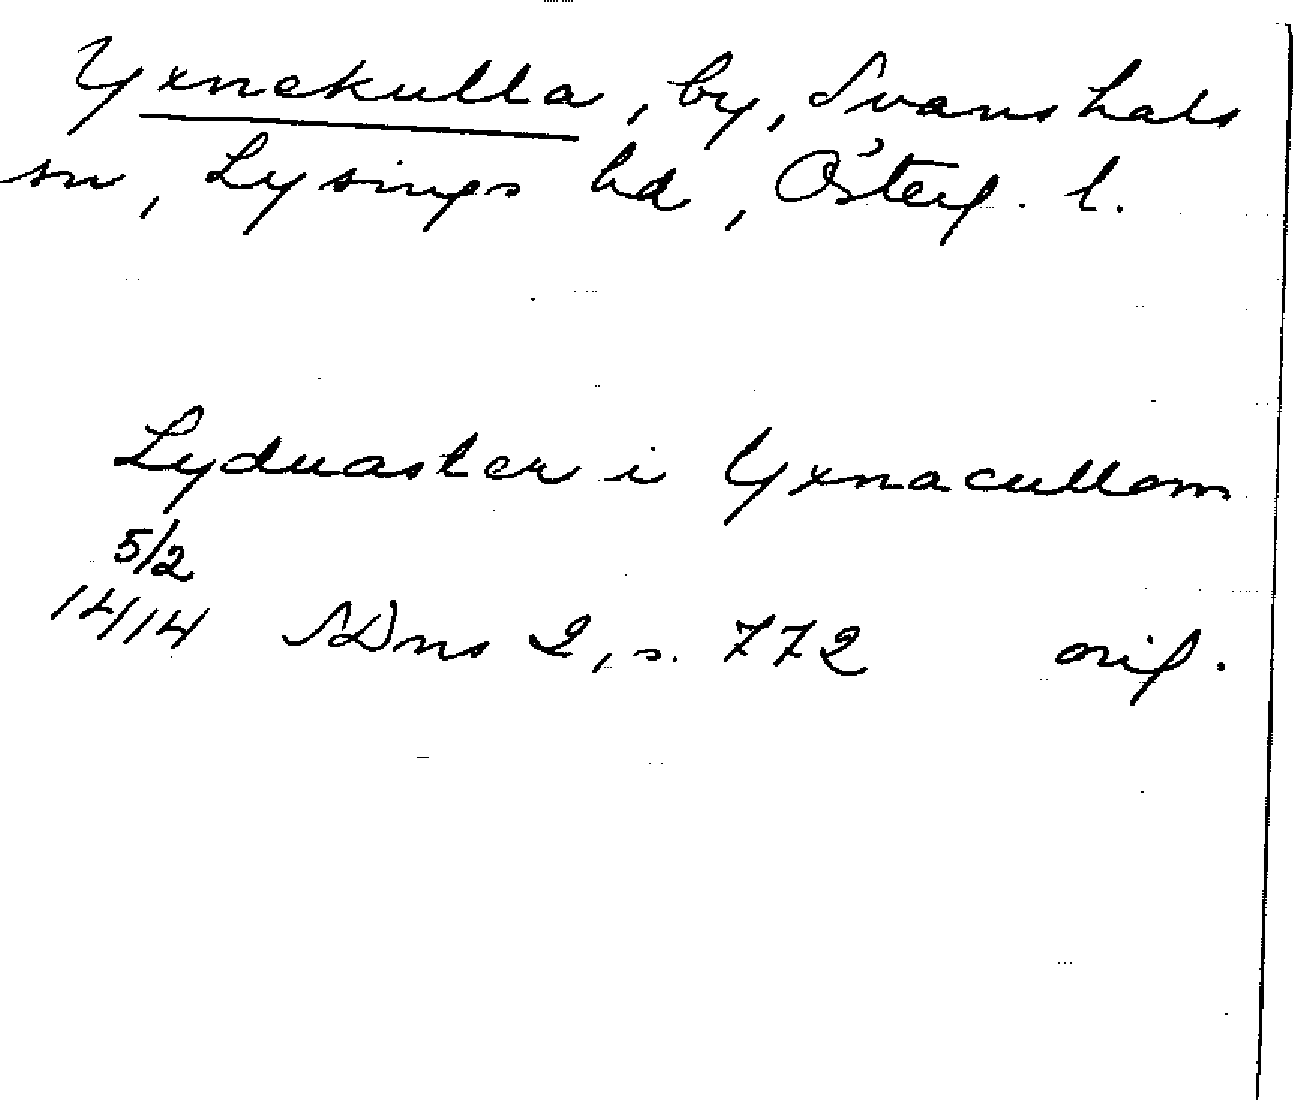 Yxnekulla, by, Svanshals
sn, Lysings hd, Österg. l.
Lyduaster i Yxnacullom
5/2
1414 SDns 2, s. 772 orig.